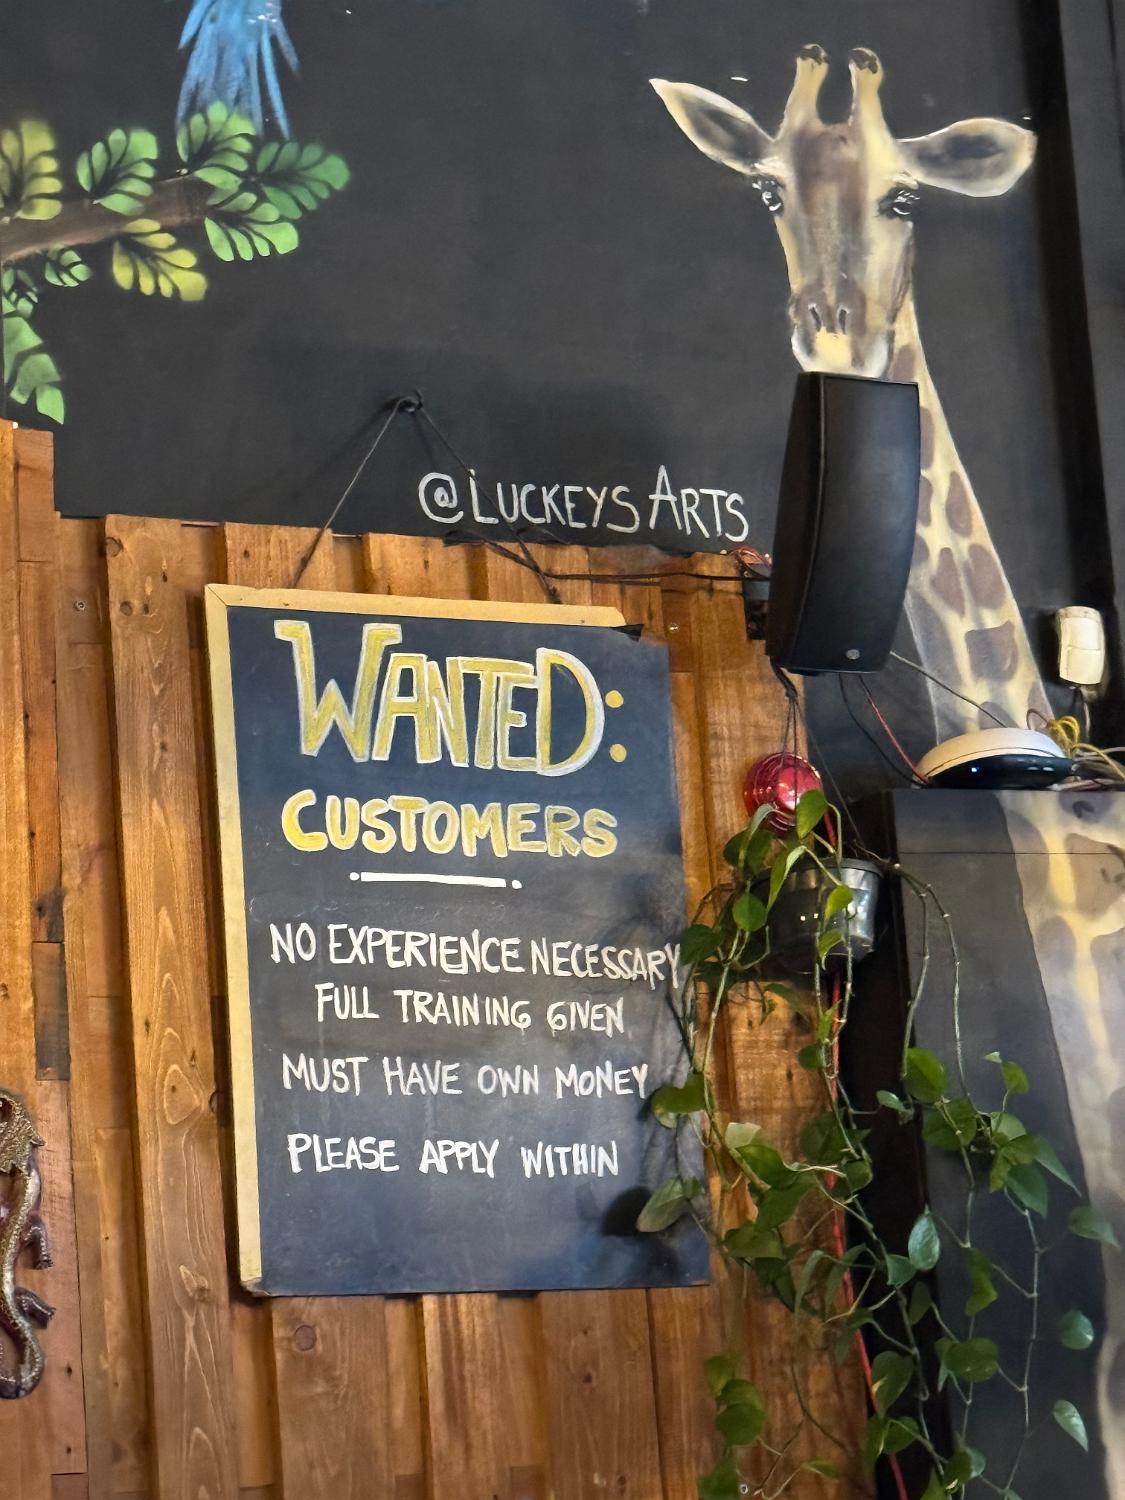 @LUCKEYSARTS
WANTED:
CUSTOMERS
NO EXPERIENCE NECESSARY
FULL TRAINING GIVEN
MUST HAVE OWN MONEY
PLEASE APPLY WITHIN